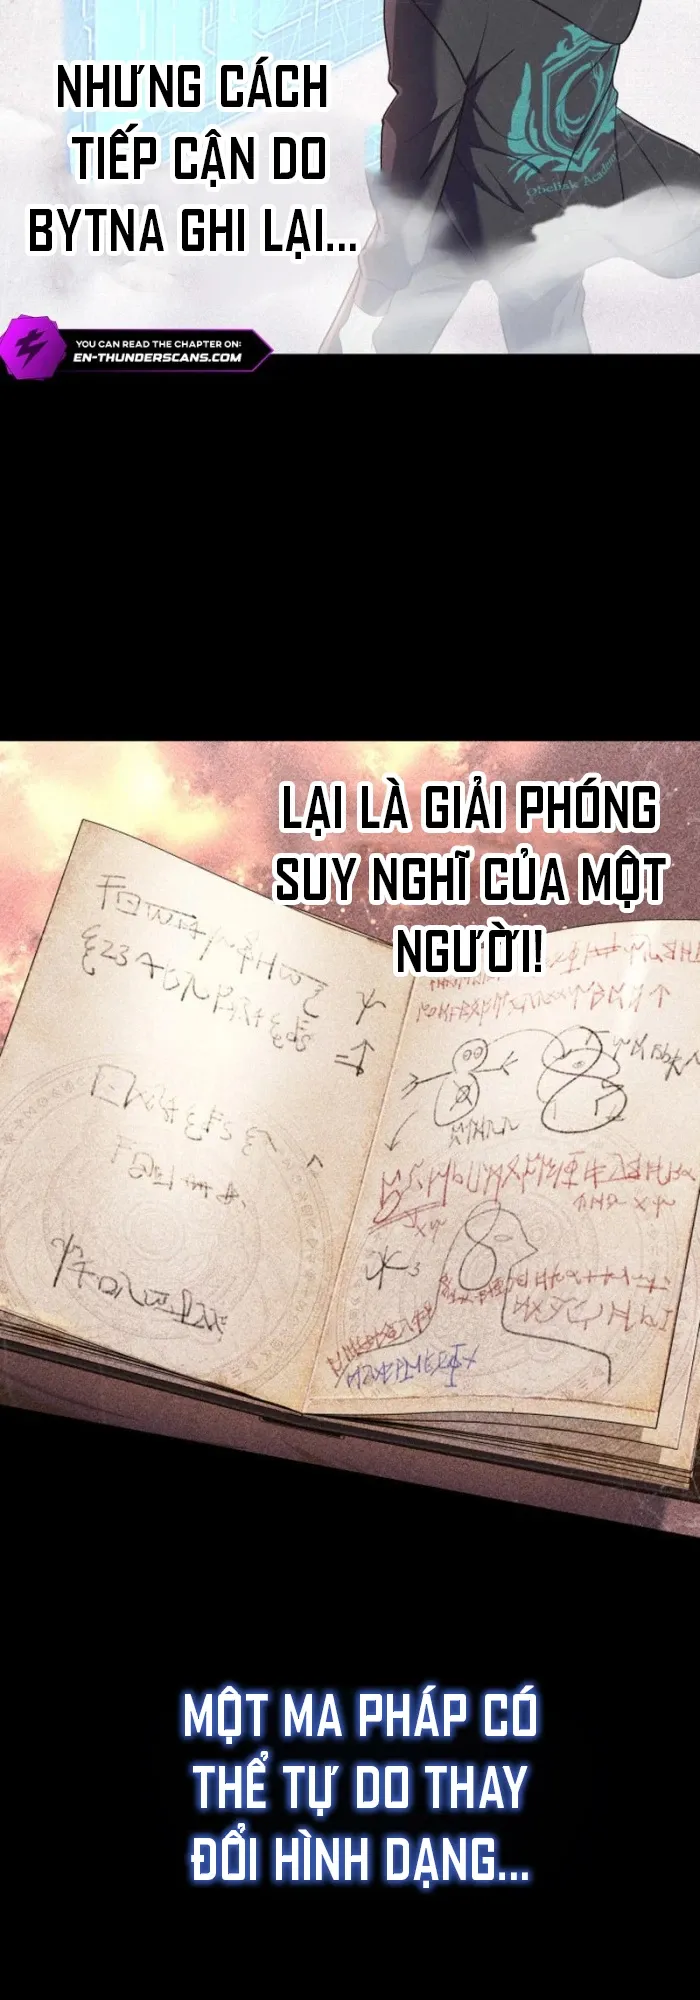 NHƯNG CÁCH
TIẾP CẬN DO
BYTNA GHI LẠI...
Obelisk Academy
YOU CAN READ THE CHAPTER ON:
EN-THUNDERSCANS.COM
LẠI LÀ GIẢI PHÓNG
SUY NGHĨ CỦA MỘT
NGƯỜI!
MỘT MA PHÁP CÓ
THỂ TỰ DO THAY
ĐỔI HÌNH DẠNG...